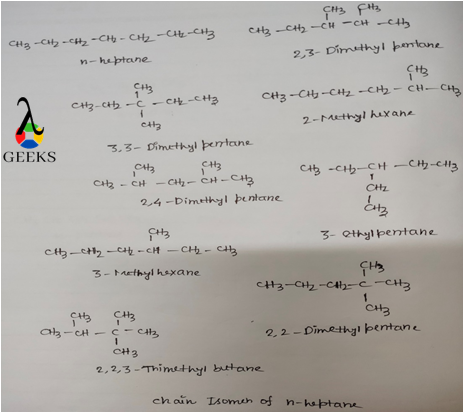 CH3-CH2-CH2-CH2-CH2-CH2-CH3
n-heptane
CH3 CH3
CH3-CH2-CH-CH-CH3
2,3-Dimethyl pentane
CH3
CH3-CH2-C-CH2-CH3
CH3
3,3-Dimethyl pentane
CH3
CH3-CH2-CH2-CH2-CH-CH3
2-Methyl hexane
λ
GEEKS
CH3 CH3
CH3-CH-CH2-CH-CH3
2,4-Dimethyl pentane
CH3-CH2-CH-CH2-CH3
CH2
CH3
3-ethyl pentane
CH3
CH3-CH2-CH2-CH-CH2-CH3
3-Methyl hexane
CH3
CH3-CH2-CH2-C-CH3
CH3
2,2-Dimethyl pentane
CH3 CH3
CH3-CH-C-CH3
CH3
2,2,3-Thimethyl buttane
chain Isomer of n-heptane